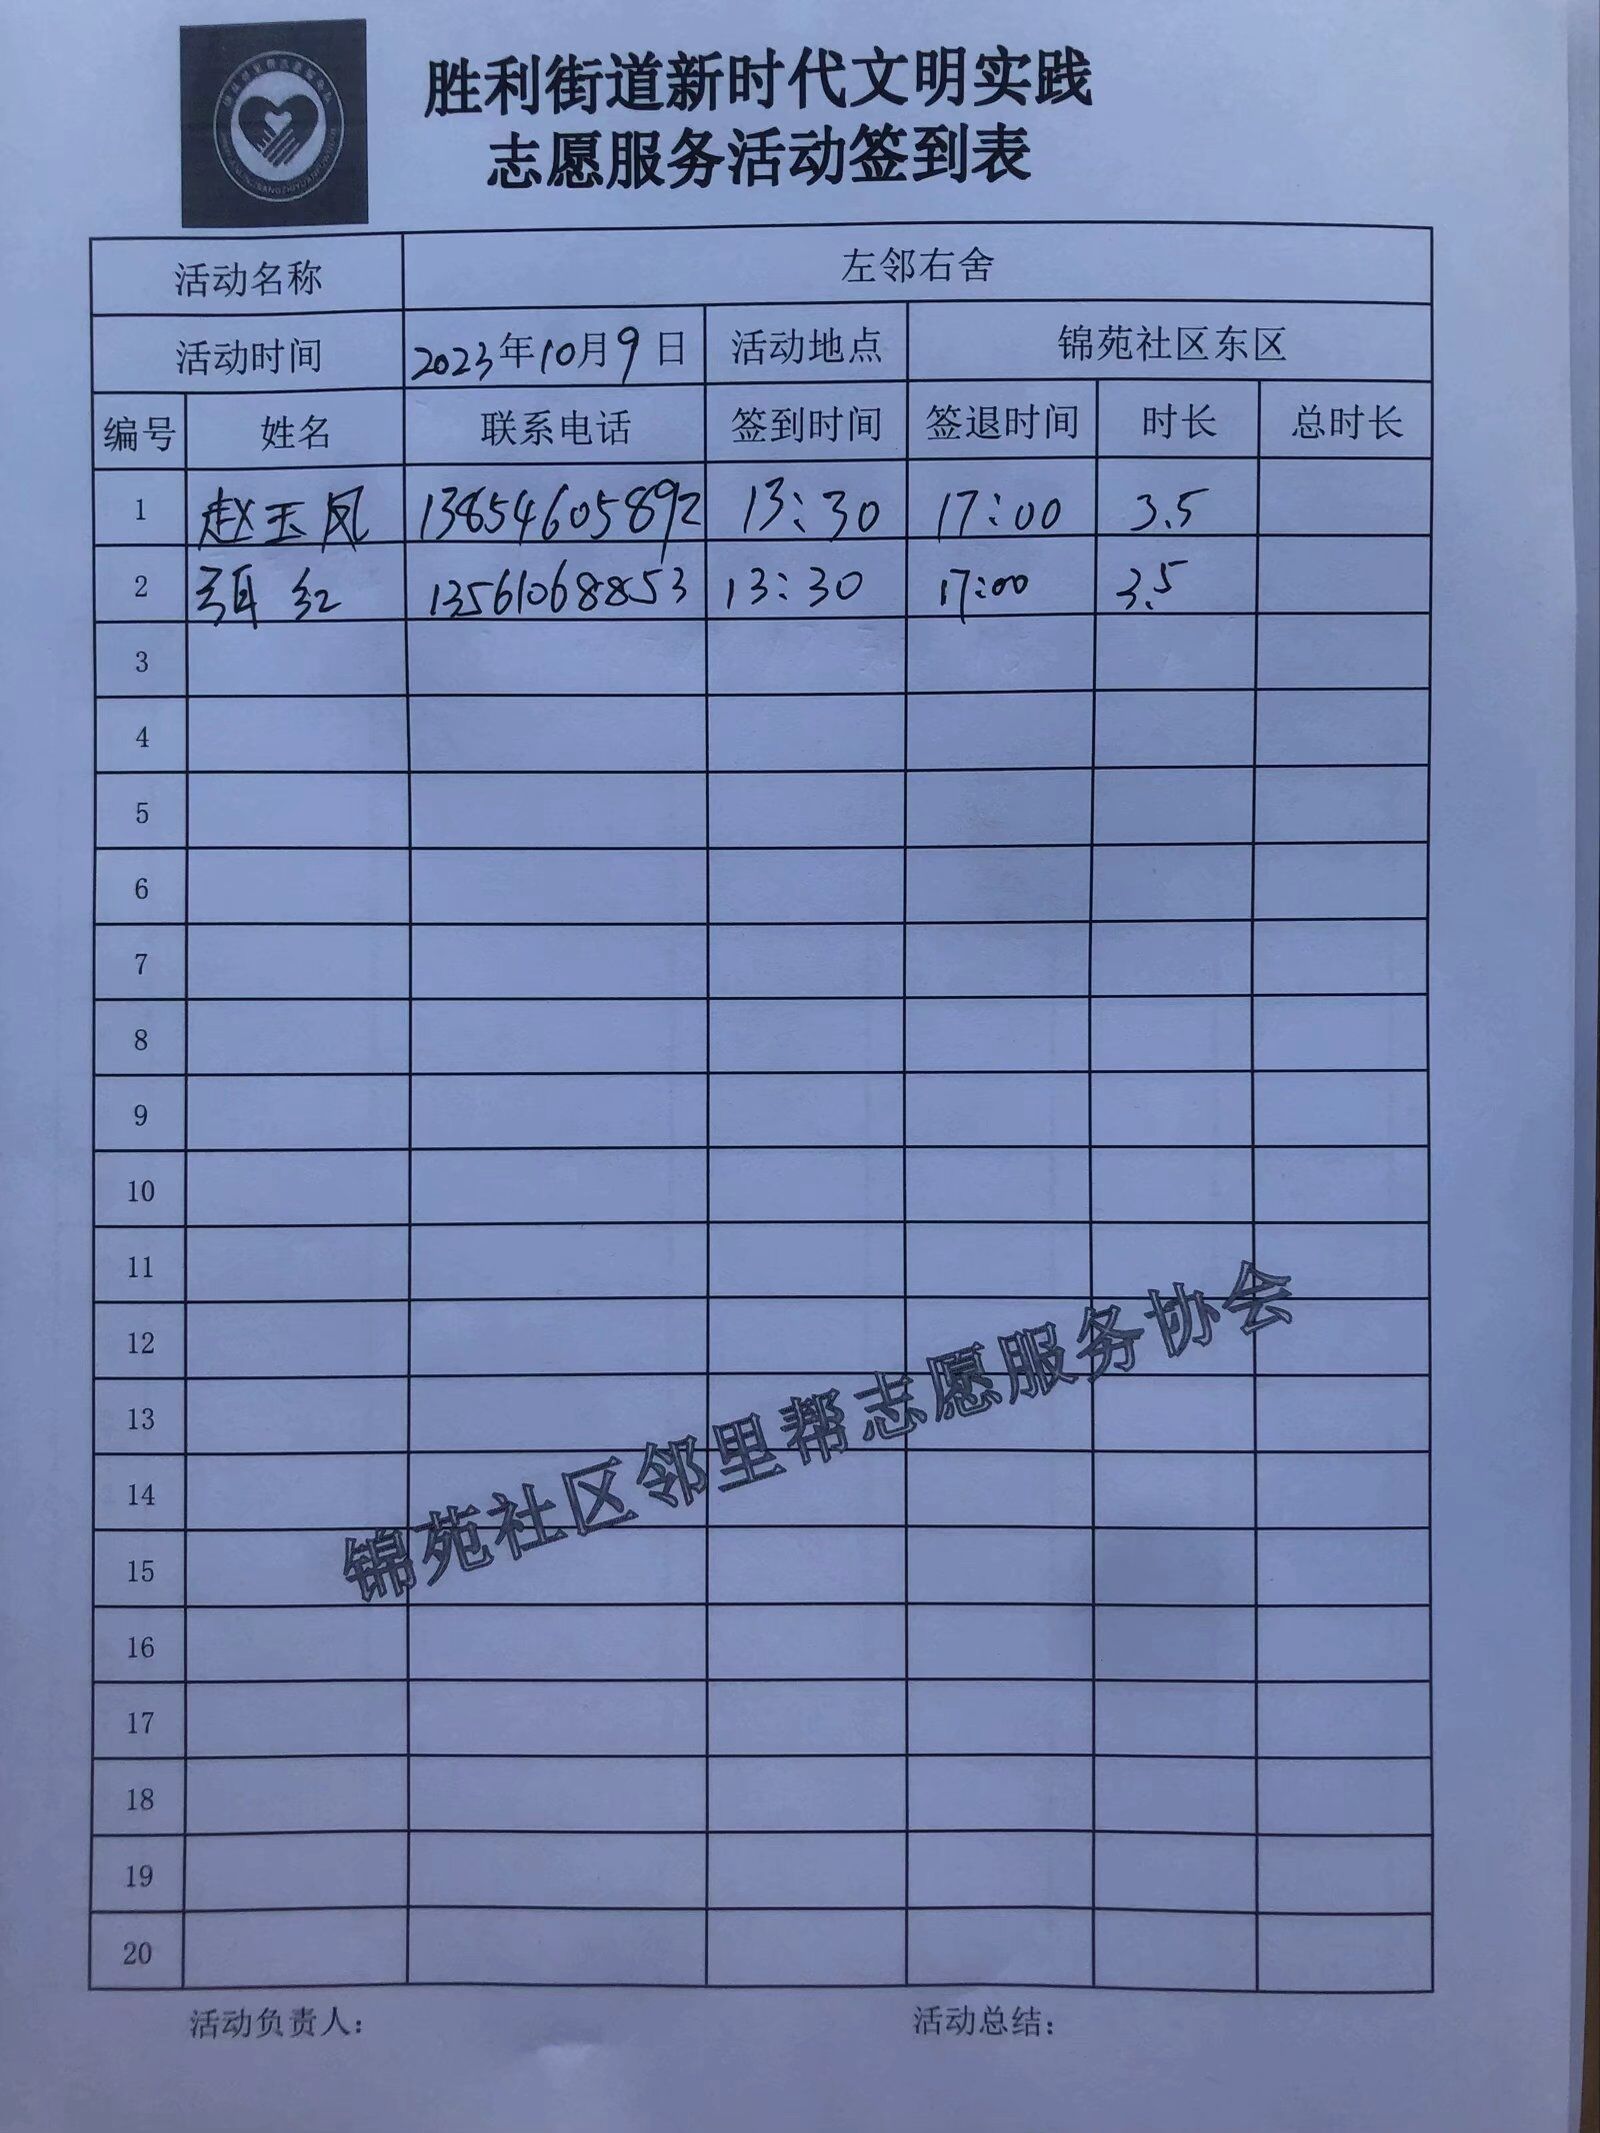 胜利街道新时代文明实践
志愿服务活动签到表
活动名称 左邻右舍
活动时间 2023年10月9日 活动地点 锦苑社区东区
编号 姓名 联系电话 签到时间 签退时间 时长 总时长
1 赵玉凤 13854605892 13:30 17:00 3.5
2 红 13561068853 13:30 17:00 3.5
3
4
5
6
7
8
9
10
11
12
13
14
15
16
17
18
19
20
锦苑社区邻里帮志愿服务协会
活动负责人: 活动总结: